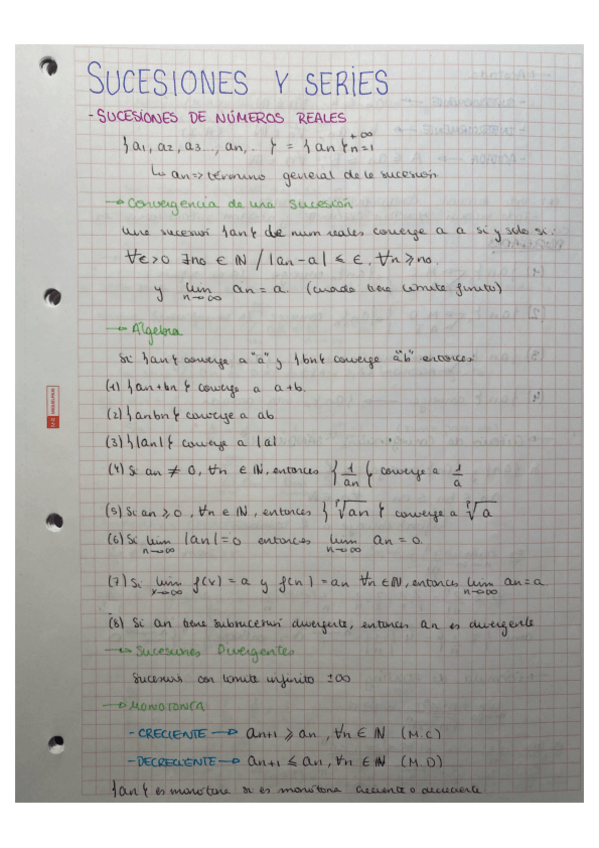 SUCESIONES Y SERIES
- SUCESIONES DE NÚMEROS REALES
{a1, a2, a3..., an, .} = {an}n=1^+∞
↳ an => término general de la sucesión
→ Convergencia de una sucesión
Una sucesión {an} de num reales converge a a si y solo si:
∀ε>0 ∃no ∈ ℕ / |an-a| ≤ ε, ∀n ≥ no.
y lim n→∞ an = a. (cuando tiene límite finito)
→ Álgebra
Si {an} converge a "a" y {bn} converge a "b" entonces:
(1) {an+bn} converge a a+b.
(2) {anbn} converge a ab
(3) {|an|} converge a |a|
(4) Si an ≠ 0, ∀n ∈ ℕ, entonces {1/an} converge a 1/a
(5) Si an ≥ 0, ∀n ∈ ℕ, entonces {ᵖ√an} converge a ᵖ√a
(6) Si lim n→∞ |an|=0 entonces lim n→∞ an = 0.
(7) Si lim x→∞ f(x) = a y f(n) = an ∀n ∈ ℕ, entonces lim n→∞ an = a
(8) Si an tiene subsucesión divergente, entonces an es divergente
→ Sucesiones Divergentes
Sucesión con límite infinito ±∞
→ MONOTONÍA
- CRECIENTE → an+1 ≥ an, ∀n ∈ ℕ (M.C)
- DECRECIENTE → an+1 ≤ an, ∀n ∈ ℕ (M.D)
{an} es monótona si es monótona creciente o decreciente